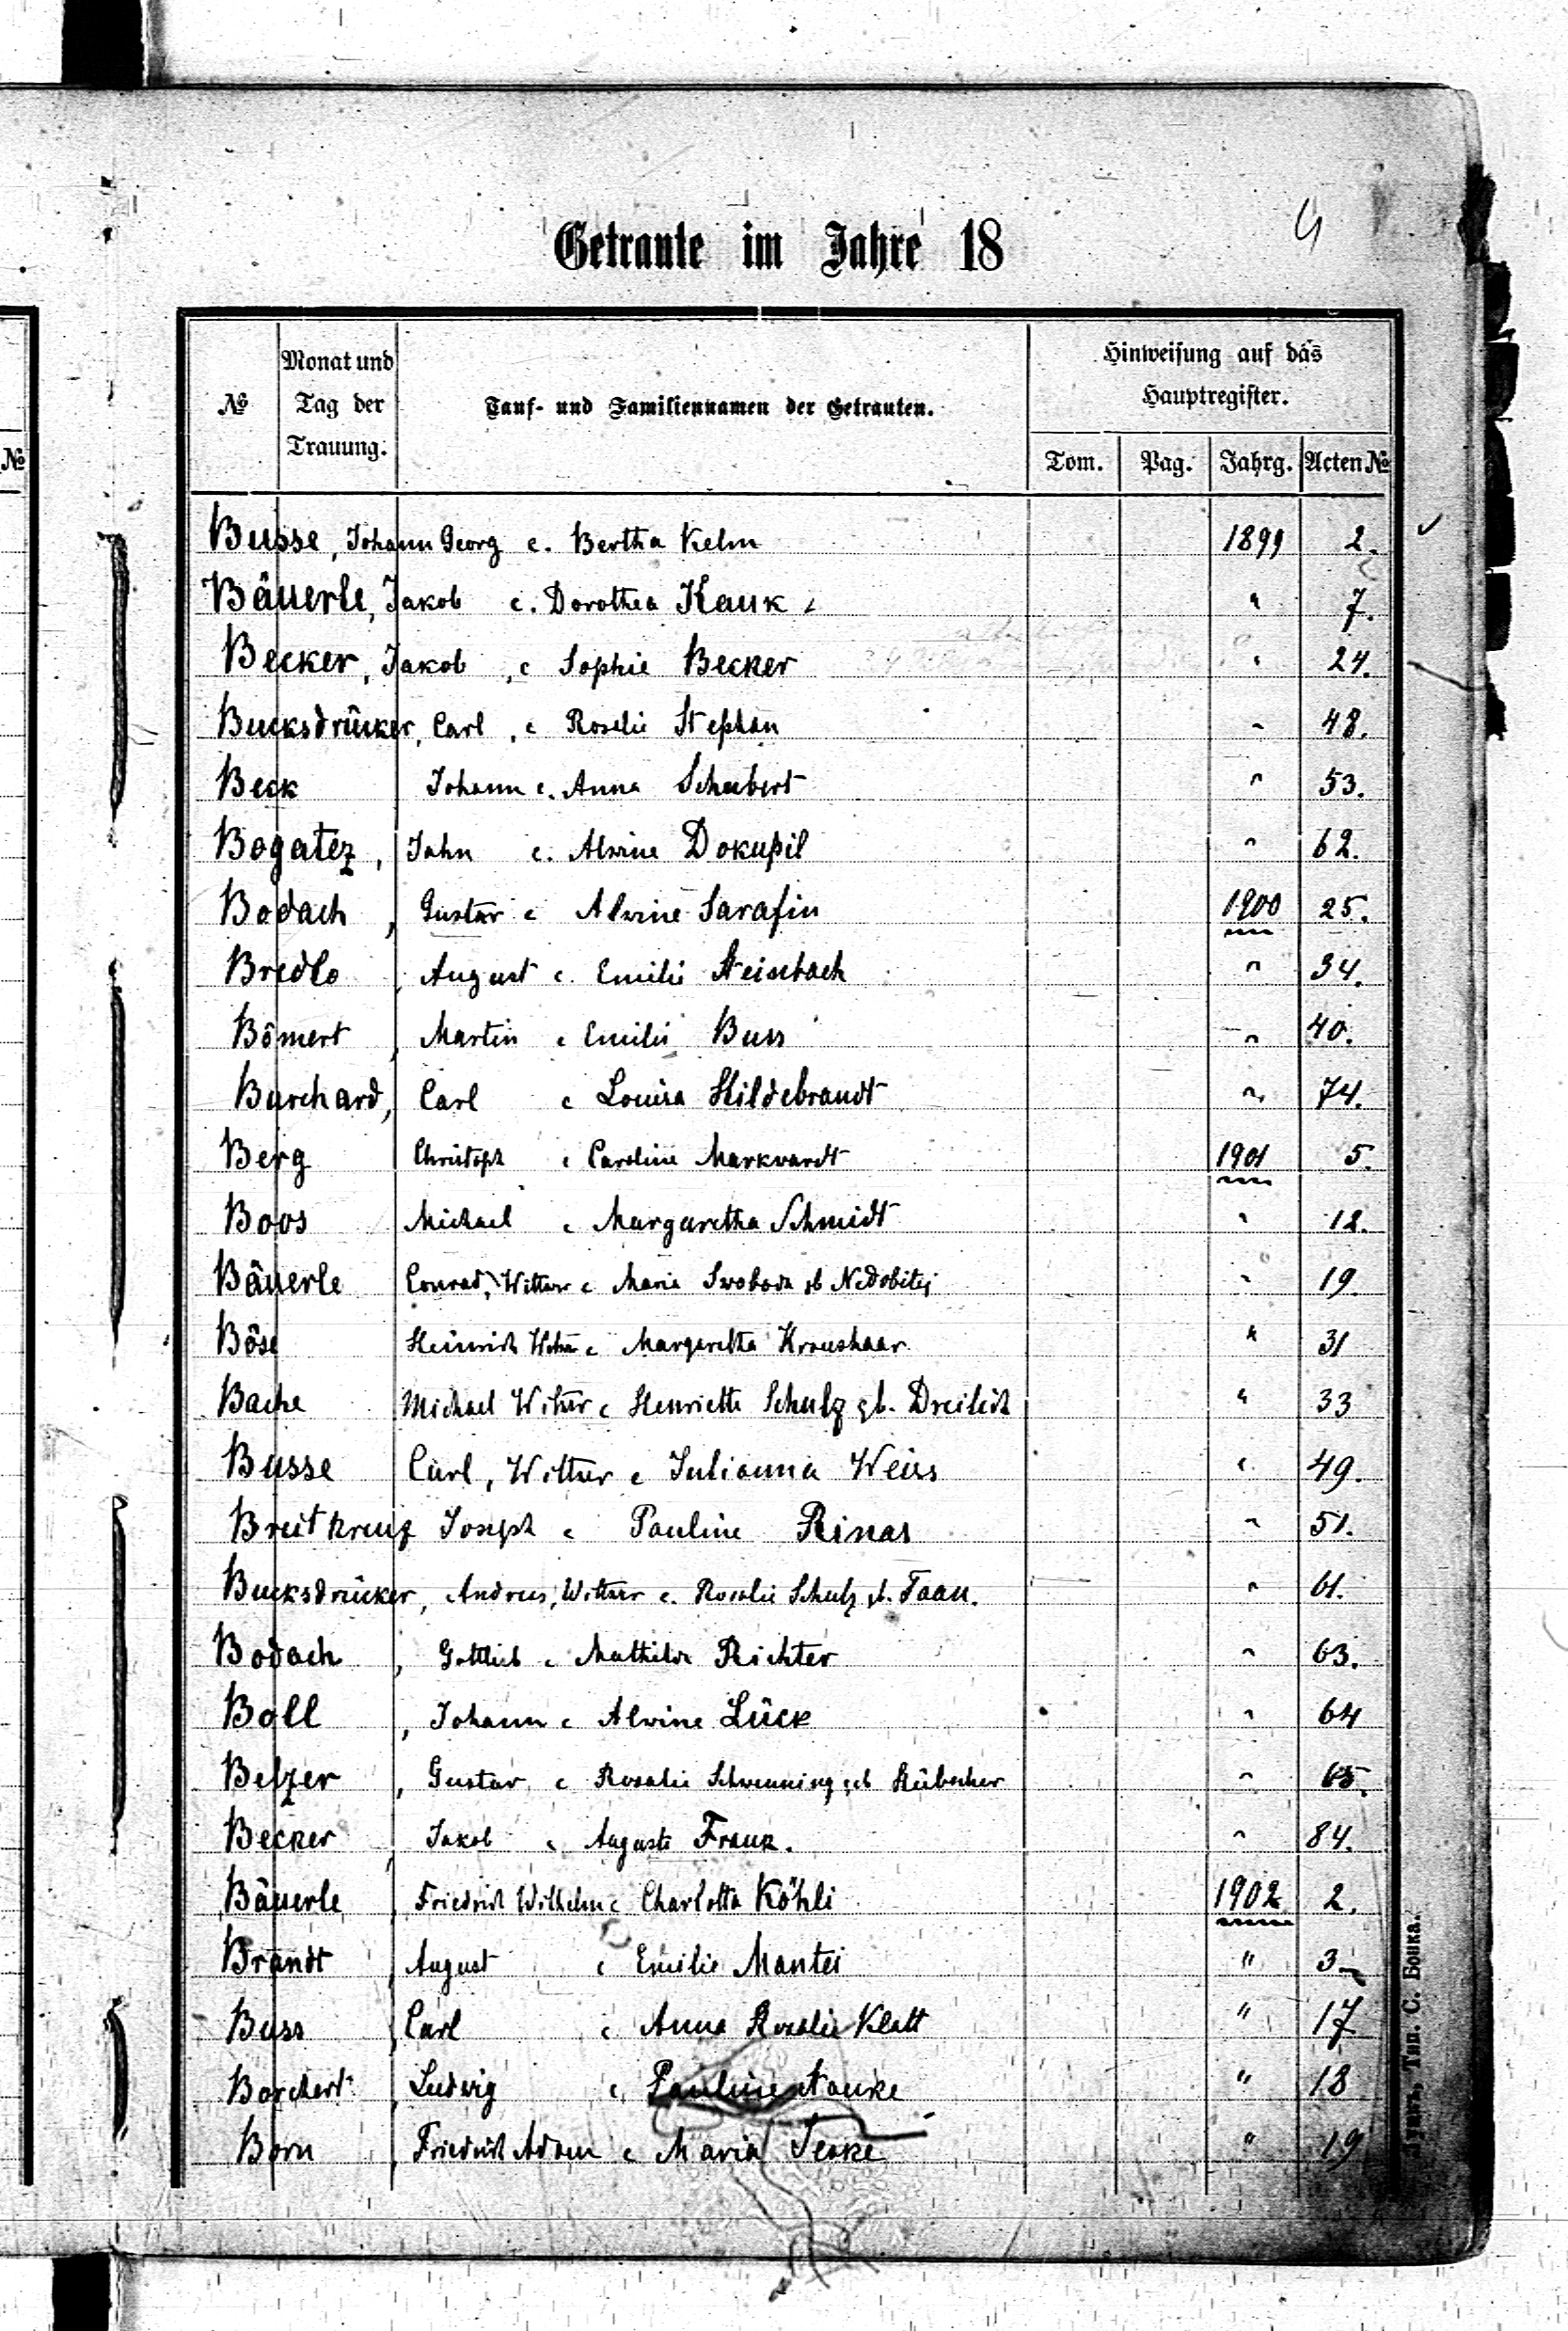 4
Getraute im Jahre 18
№
Monat und
Tag der
Trauung.
Tauf- und Familiennamen der Getrauten.
Hinweisung auf das
Hauptregister.
Tom. Pag. Jahrg. Acten №
№
Busse, Johann Georg c. Bertha Kelm 1899 2.
Bäuerle, Jakob c. Dorothea Kauk " 7.
Becker, Jakob, c Sophie Becker " 24.
Bucksdrücker, Carl, c Roselie Stephan " 48.
Beck Johann c. Anna Schubert " 53.
Bogatez, John c. Alwine Dokupil " 62.
Bodach, Gustav c Alvine Sarafin 1900 25.
Bredlo, August c. Emilie " 34.
Bömert, Martin c Emilie Buss " 40.
Burchard, Carl c Louisa Hildebrandt " 74.
Berg Christoph c Caroline Markvardt 1901 5.
Boos Michael c Margaretha Schmidt " 12.
Bäuerle Conrad, Wittwer c Maria Swoboda gb Nedobitej " 19.
Böse Heinrich c Margaretha Kraushaar " 31
Bache Michael Witwer c Henriette Schulz gb. Dreilich " 33
Busse Carl, Wittwer c Julianna Weiss " 49.
Breitkreuz Joseph c Pauline Rinas " 51.
Bucksdrücker, Andreas, Wittwer c. Rosalie Schulz gb. Taan. " 61.
Bodach, Gottlieb c Mathilde Richter " 63.
Boll, Johann c Alvine Lück " 64
Belzer, Gustav c Rosalie geb " 65.
Becker, Jakob c Auguste Frank. " 84.
Bäuerle, Friedrich Wilhelm c Charlotta Köhli 1902 2.
Brandt, August c Emilie Mantei " 3
Buss, Carl c Anna Rosalie Klatt " 17
Borchert, Ludwig c Pauline " 18
Born, Friedrich Adam c Maria Teske " 19
Тип. С. Бонка.